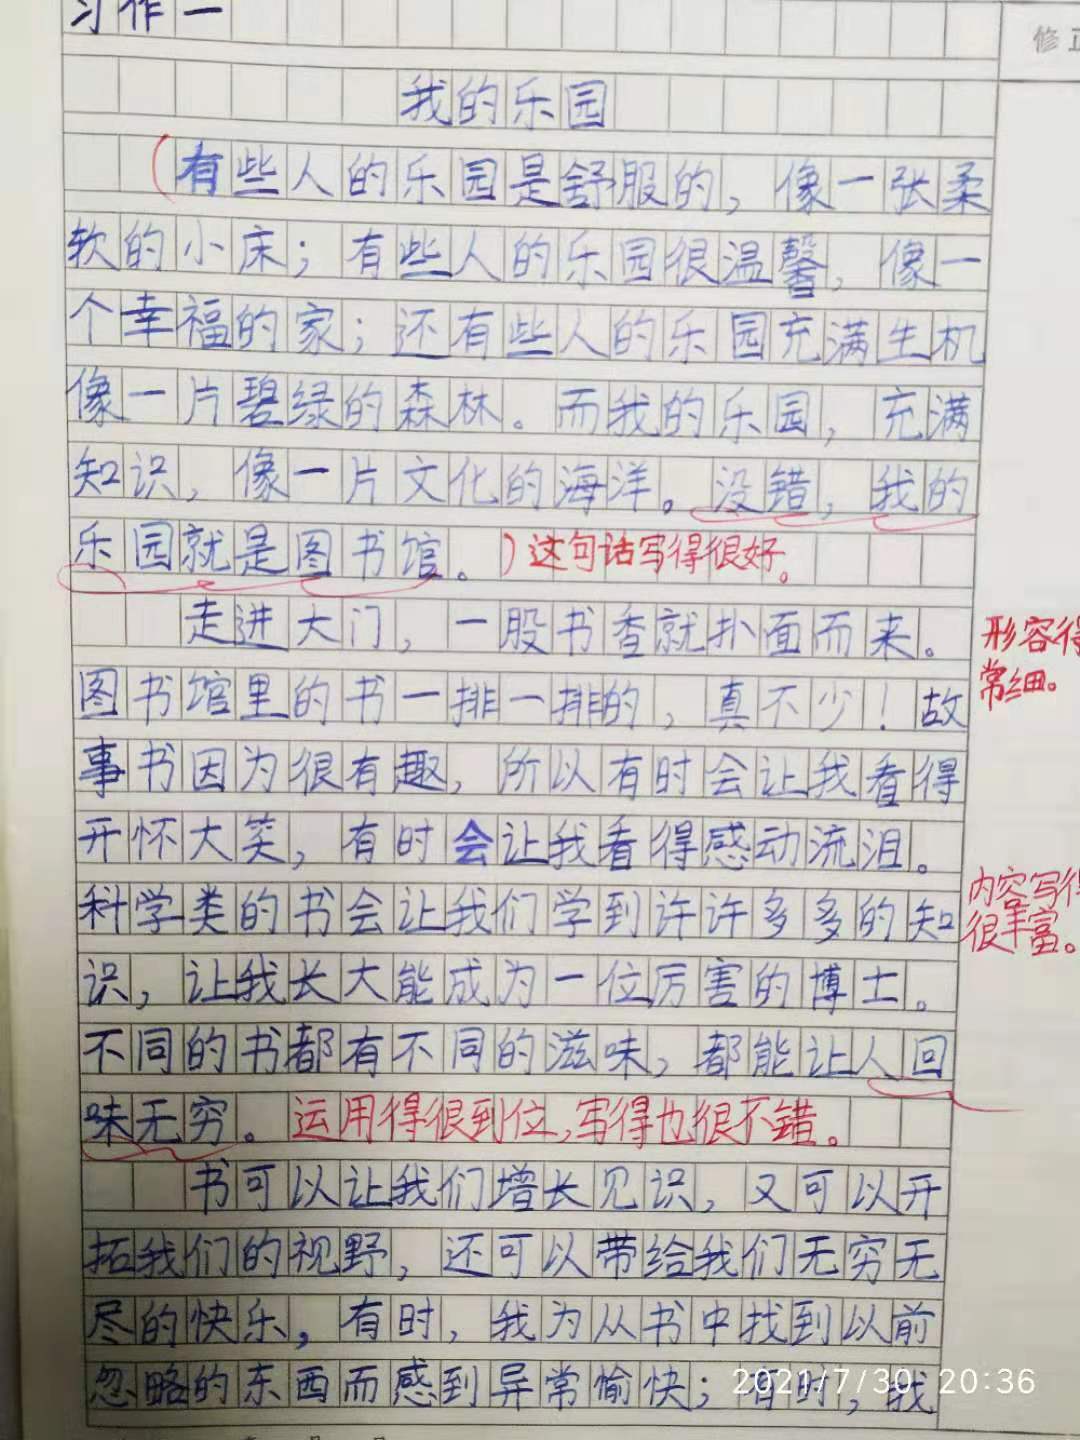 习作一
修正
我的乐园
(有些人的乐园是舒服的，像一张柔
软的小床；有些人的乐园很温馨，像一
个幸福的家；还有些人的乐园充满生机
像一片碧绿的森林。而我的乐园，充满
知识，像一片文化的海洋。没错，我的
乐园就是图书馆。)这句话写得很好。
走进大门，一股书香就扑面而来。
形容得
常细。
图书馆里的书一排一排的，真不少！故
事书因为很有趣，所以有时会让我看得
开怀大笑，有时会让我看得感动流泪。
内容写得
很丰富。
科学类的书会让我们学到许许多多的知
识，让我长大能成为一位厉害的博士。
不同的书都有不同的滋味，都能让人回
味无穷。运用得很到位，写得也很不错。
书可以让我们增长见识，又可以开
拓我们的视野，还可以带给我们无穷无
尽的快乐，有时，我为从书中找到以前
忽略的东西而感到异常愉快；有时，我
2021/7/30 20:36